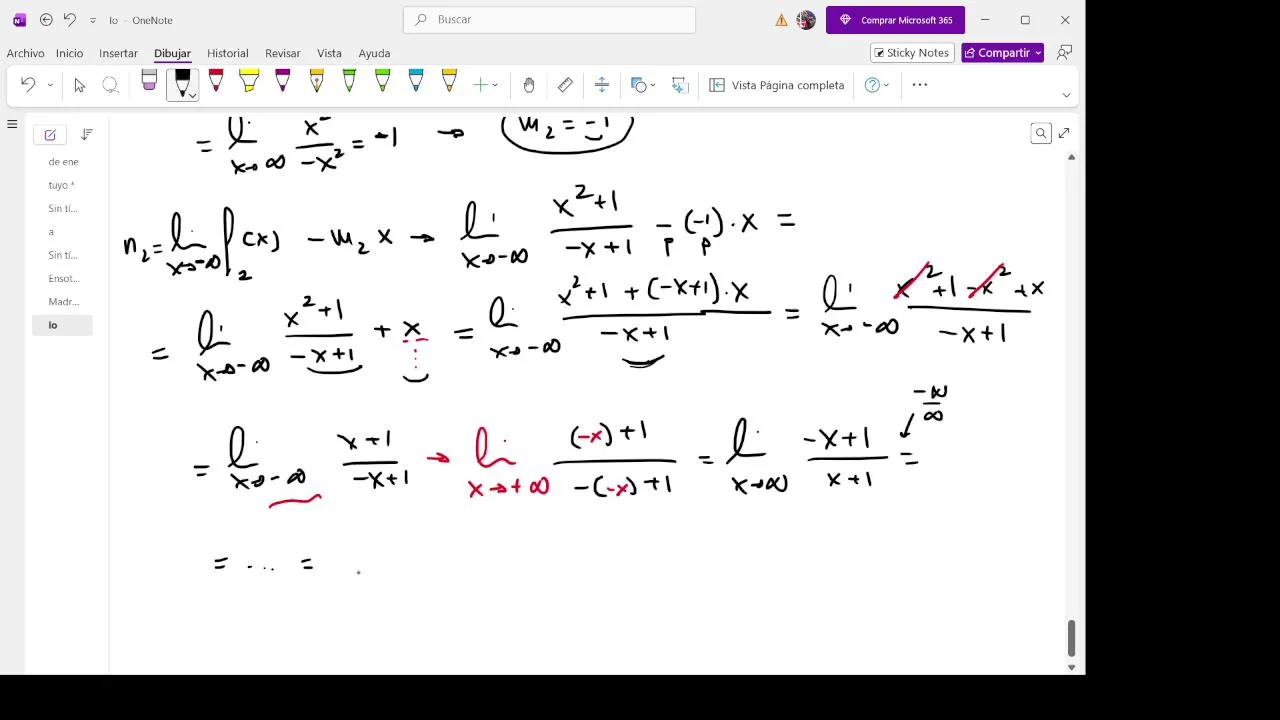 lo - OneNote
Buscar
Comprar Microsoft 365
Archivo Inicio Insertar Dibujar Historial Revisar Vista Ayuda
Sticky Notes
Compartir
Vista Página completa
de ene
tuyo *
Sin tí...
a
Sin tí...
Ensot...
Madr...
lo
= lim x→∞ x²/-x² = -1 → m₂ = -1
n₂ = lim x→-∞ f₂(x) - m₂x → lim x→-∞ x²+1/-x+1 - (-1)·x =
= lim x→-∞ x²+1/-x+1 + x = lim x→-∞ x²+1+(-x+1)·x/-x+1 = lim x→-∞ x²+1-x²+x/-x+1
-∞/∞
= lim x→-∞ x+1/-x+1 → lim x→+∞ (-x)+1/-(-x)+1 = lim x→∞ -x+1/x+1 =
= ... =